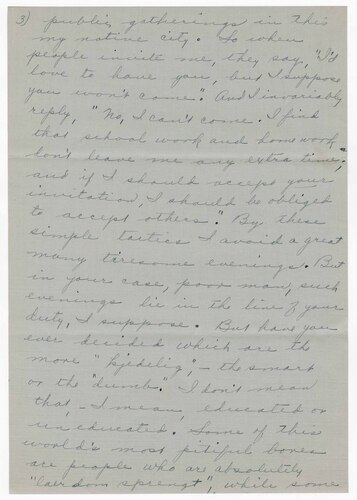 3) public gatherings in this
my native city. So when
people invite me, they say, "I'd
love to have you, but I suppose
you won't come". And I invariably
reply, "No, I can't come. I find
that school work and home work
don't leave me any extra time;
and if I should accept your
invitation, I should be obliged
to accept others." By these
simple tactics I avoid a great
many tiresome evenings. But
in your case, poor man, such
evenings lie in the line of your
duty, I suppose. But have you
ever decided which are the
more "kjedelig", - the smart
or the "dumb". I don't mean
that, - I mean, educated or
uneducated. Some of this
world's most pitiful bores
are people who are absolutely
"lærdom sprengt", while some